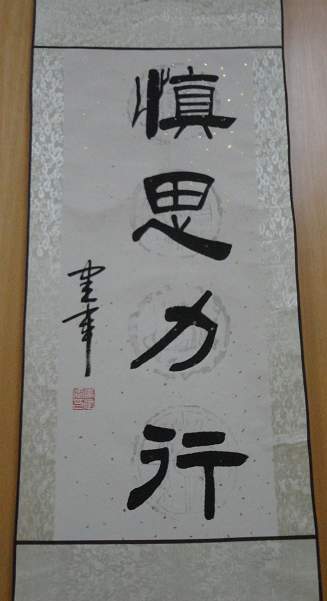 慎思力行